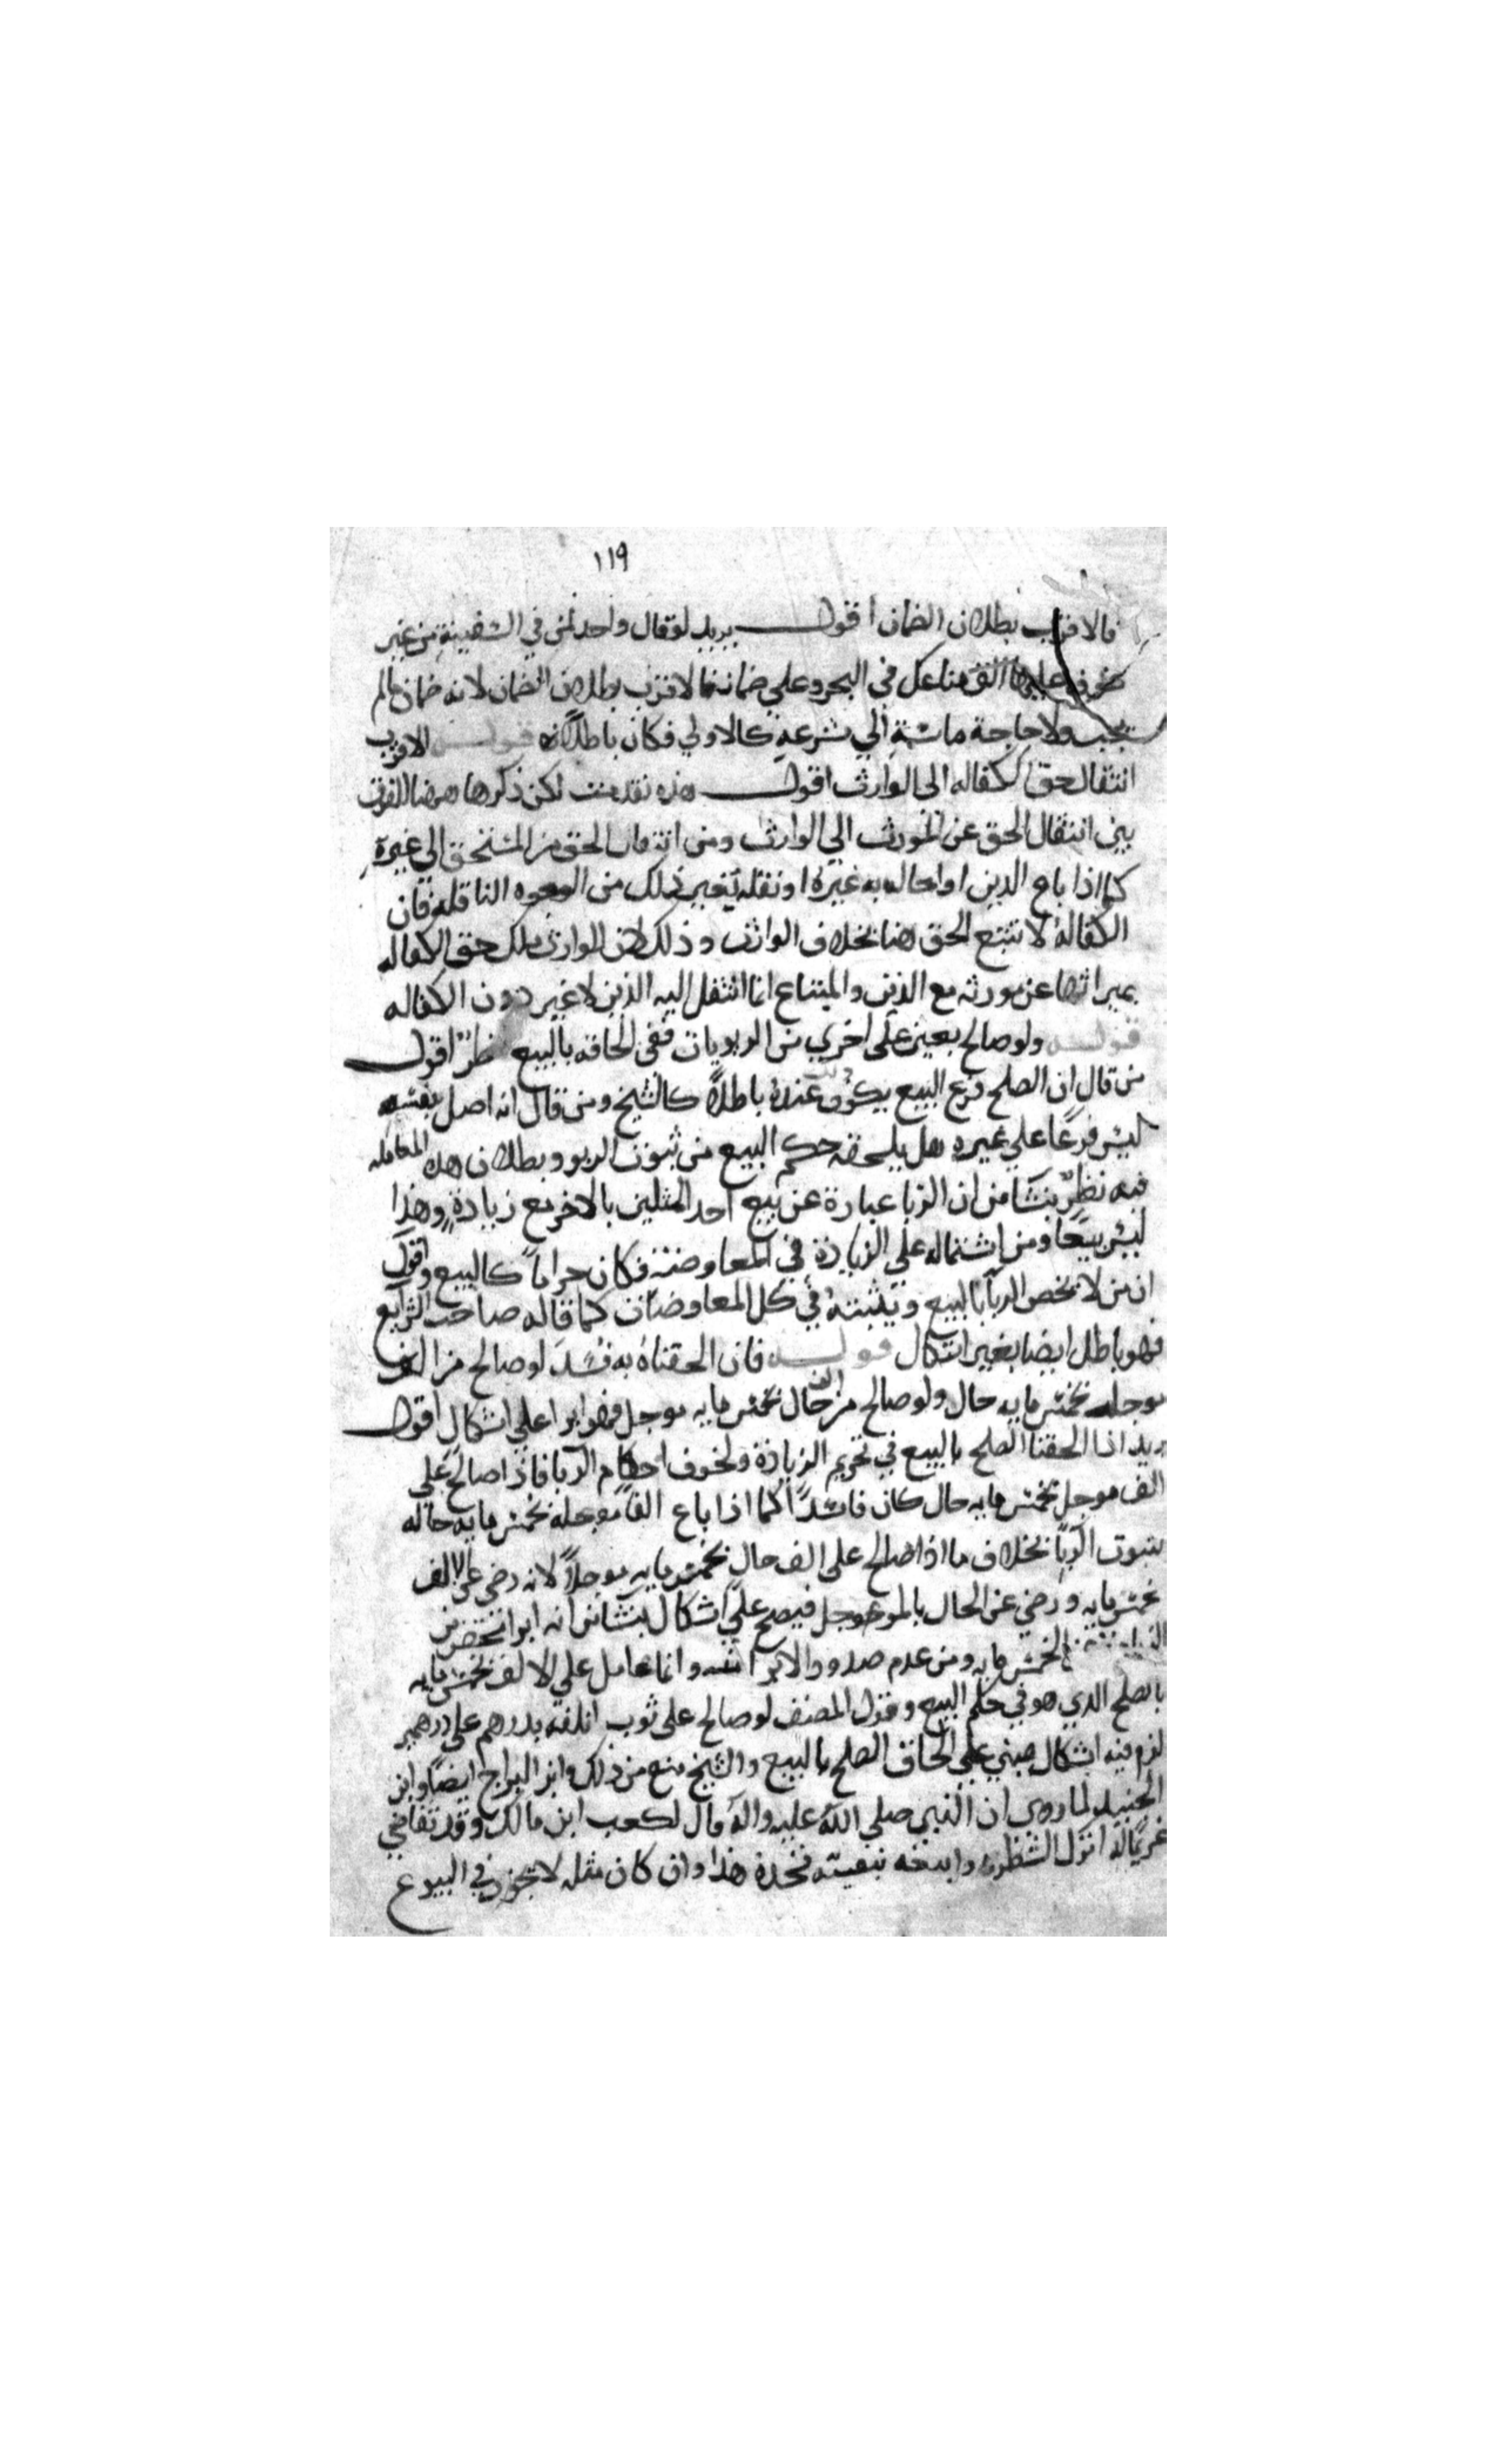 ١١٩
فالاقرب بطلان الضمان اقول يريد لو قال واحد لمن في السفينة من غير
خوف عليها الق متاعك في البحر وعلي ضمانه فالاقرب بطلان الضمان لانه ضمان مالم
يجب ولا حاجة ماسة الي شرعه كالاولي فكان باطلا قوله الاقرب
انتقال حق الكفاله الى الوارث اقول هذه تقدمت لكن ذكرها هنا للفرق
بين انتقال الحق عن المورث الي الوارث ومن انتقال الحق من المستحق الي غيره
كما اذا باع الدين او احاله به غيره او نقله بغير ذلك من الوجوه الناقله فان
الكفالة لا تتبع الحق هنا بخلاف الوارث وذلك لان الوارث ملك حق الكفاله
بميراثها عن مورثه مع الدين والمبتاع انما انتقل اليه الدين لا غير دون الكفاله
قوله ولو صالح بعين على اخري من الربويات ففي الحاقه بالبيع نظر اقول
من قال ان الصلح فرع البيع يكون ذلك عنده باطلا كالشيخ ومن قال انه اصل بنفسه
ليس فرعا علي غيره هل يلحقه حكم البيع من ثبوت الربو وبطلان هذه المعامله
فيه نظر ينشا من ان الربا عبارة عن بيع احد المثلين بالاخر مع زيادة وهذا
ليس بيعا ومن اشتماله علي الزيادة في المعاوضة فكان حراما كالبيع واقول
ان من لا يخص الربا بالبيع ويثبته في كل المعاوضات كما قاله صاحب الشرايع
فهو باطل ايضا بغير اشكال قوله فان الحقناه به فسد لو صالح من الف
موجله بخمس مايه حال ولو صالح من الف حال بخمس مايه موجل فهو ابرا علي اشكال اقول
يريد اذا الحقنا الصلح بالبيع في تحريم الزيادة ولحوق احكام الربا فاذا صالح علي
الف موجل بخمس مايه حال كان فاسدا كما اذا باع الفا موجله بخمس مايه حاله
بثبوت الربا بخلاف ما اذا صالح على الف حال بخمس مايه موجلا لانه رضي عن الالف
بخمس مايه ورضي عن الحال بالموجل فيصح علي اشكال ينشا من انه ابرا من
الخمس مايه ومن عدم صدور الابرا منه وانما عامل علي الالف بخمس مايه
بالصلح الذي هو في حكم البيع وقول المصنف لو صالح على ثوب اتلفه بدرهم على درهمين
لزم فيه اشكال مبني علي الحاق الصلح بالبيع والشيخ منع من ذلك وابن البراج ايضا وابن
الجنيد لما روى ان النبي صلي الله عليه واله قال لكعب ابن مالك وقد تقاضي
غريما له اترك الشطر واتبعه ببقيته فخذه هذا وان كان مثله لا يجوز في البيوع